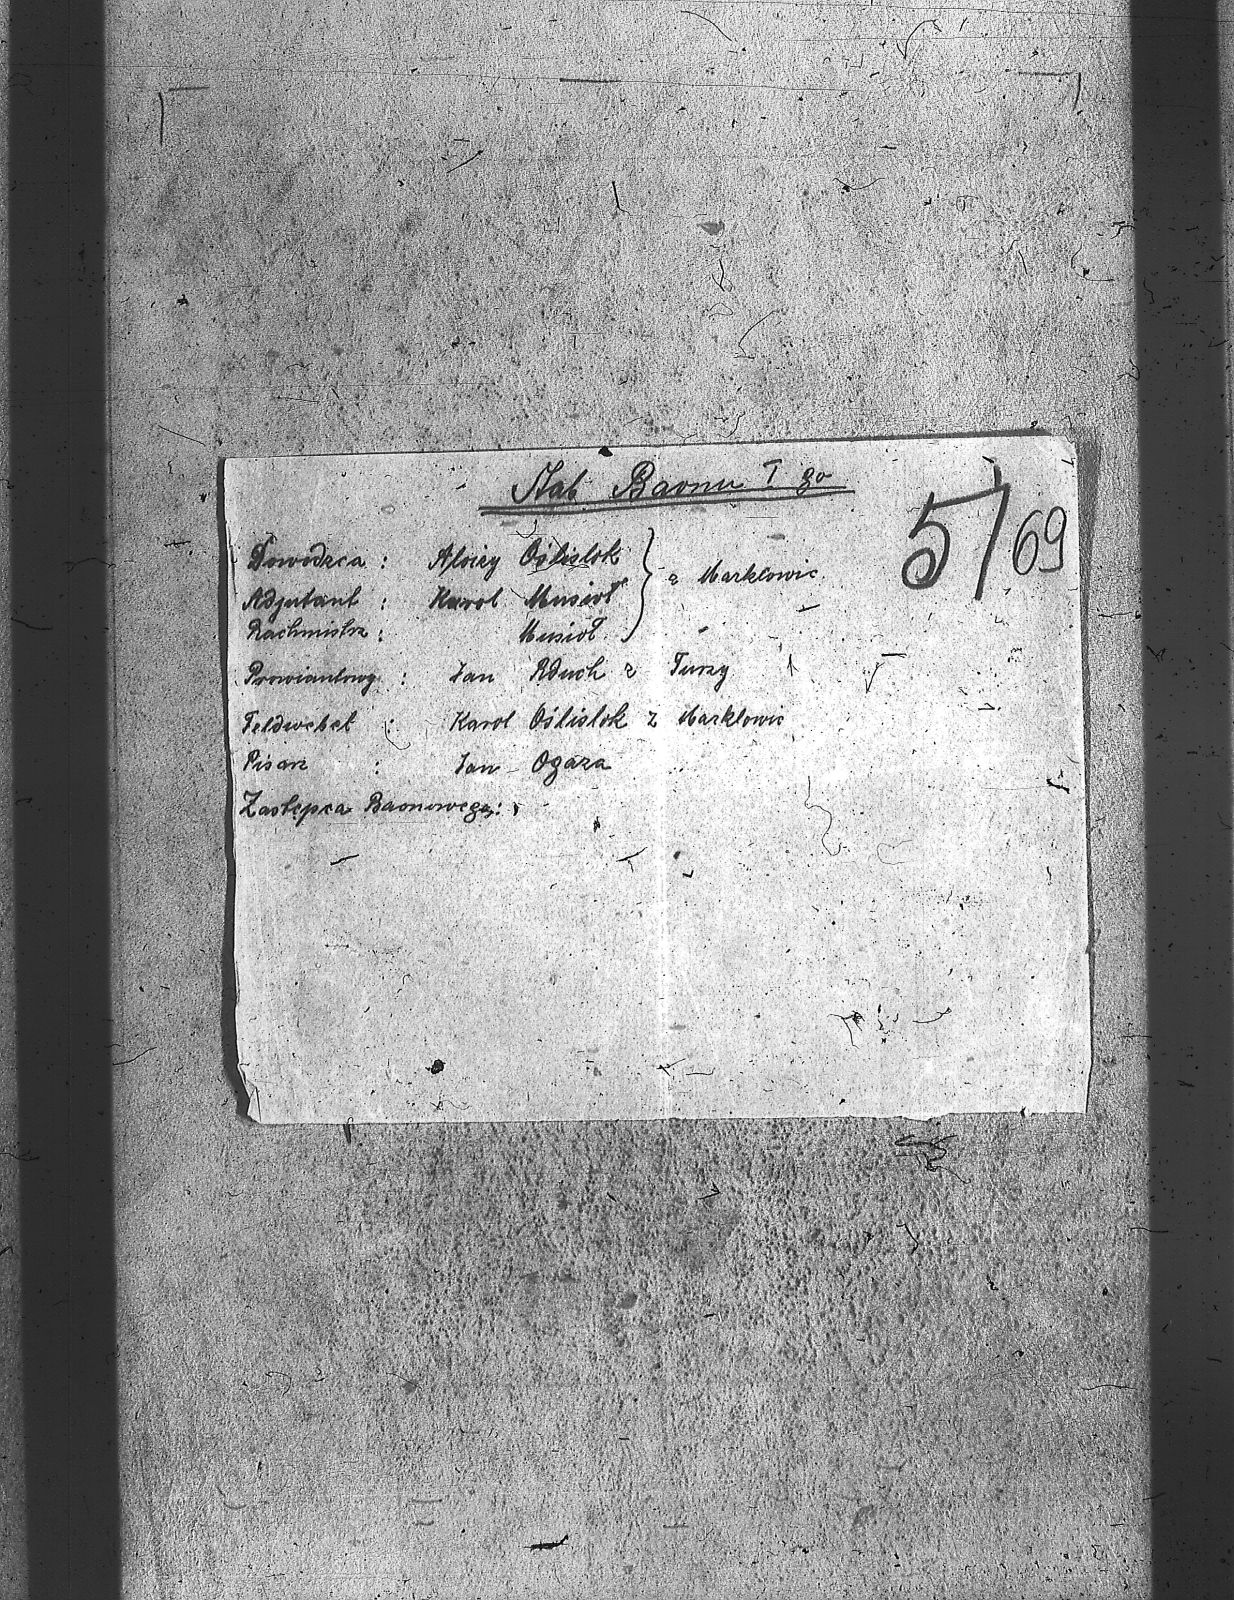 Stab Baonu I go
5/69
Dowódzca : Alojzy Oślislok } z Marklowic
Adjutant : Karol Musioł
Rachmistrz : Musioł
Prowiantowy : Jan Aduch z Turzy
Feldwebel : Karol Oślislok z Marklowic
Pisarz : Jan Ogaza
Zastępca Baonowego :